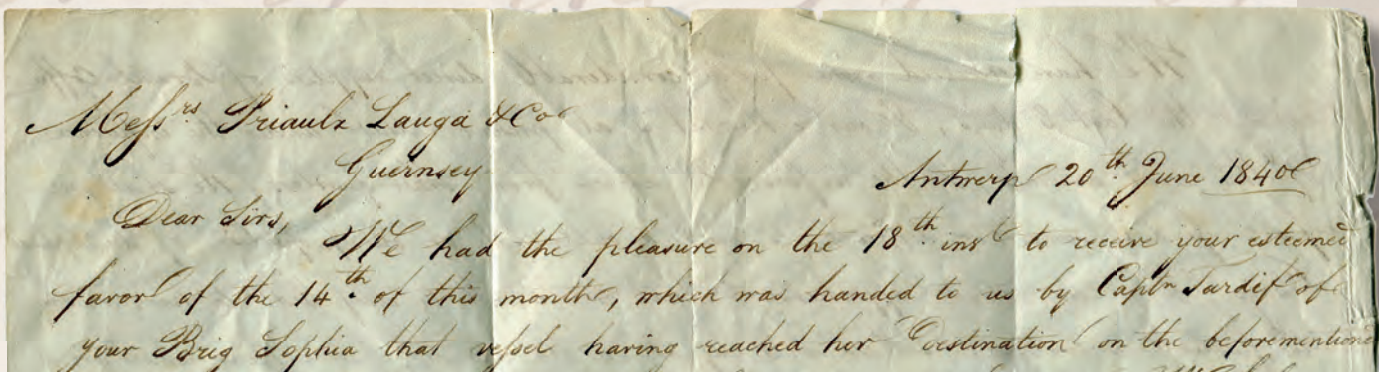 Messrs Priaulx Lauga & Co
Guernsey
Antwerp 20th June 1840
Dear Sirs,
We had the pleasure on the 18th inst to receive your esteemed
favor of the 14th of this month, which was handed to us by Captn Tardif of
your Brig Sophia that vessel having reached her destination on the beforementioned